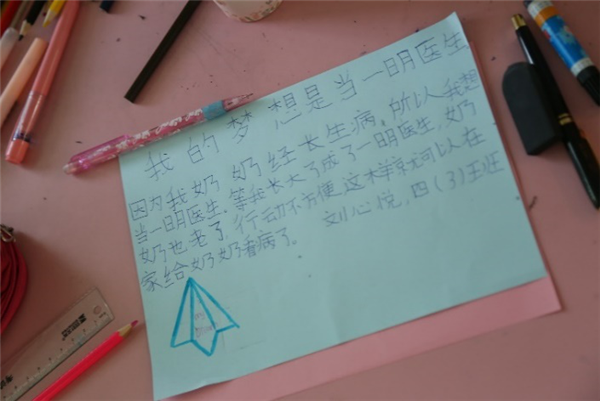 我的梦想是当一明医生
因为我奶奶经长生病,所以我想
当一明医生,等我长大了成了一明医生,奶
奶也老了,行动不方便,这样就可以在
家给奶奶看病了。 刘心悦,四(3)班